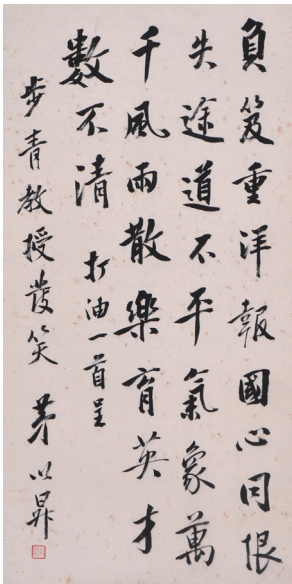 負笈重洋報國心同恨
失途道不平氣象萬
千風雨散樂育英才
數不清 打油一首呈
步青教授發笑 茅以昇